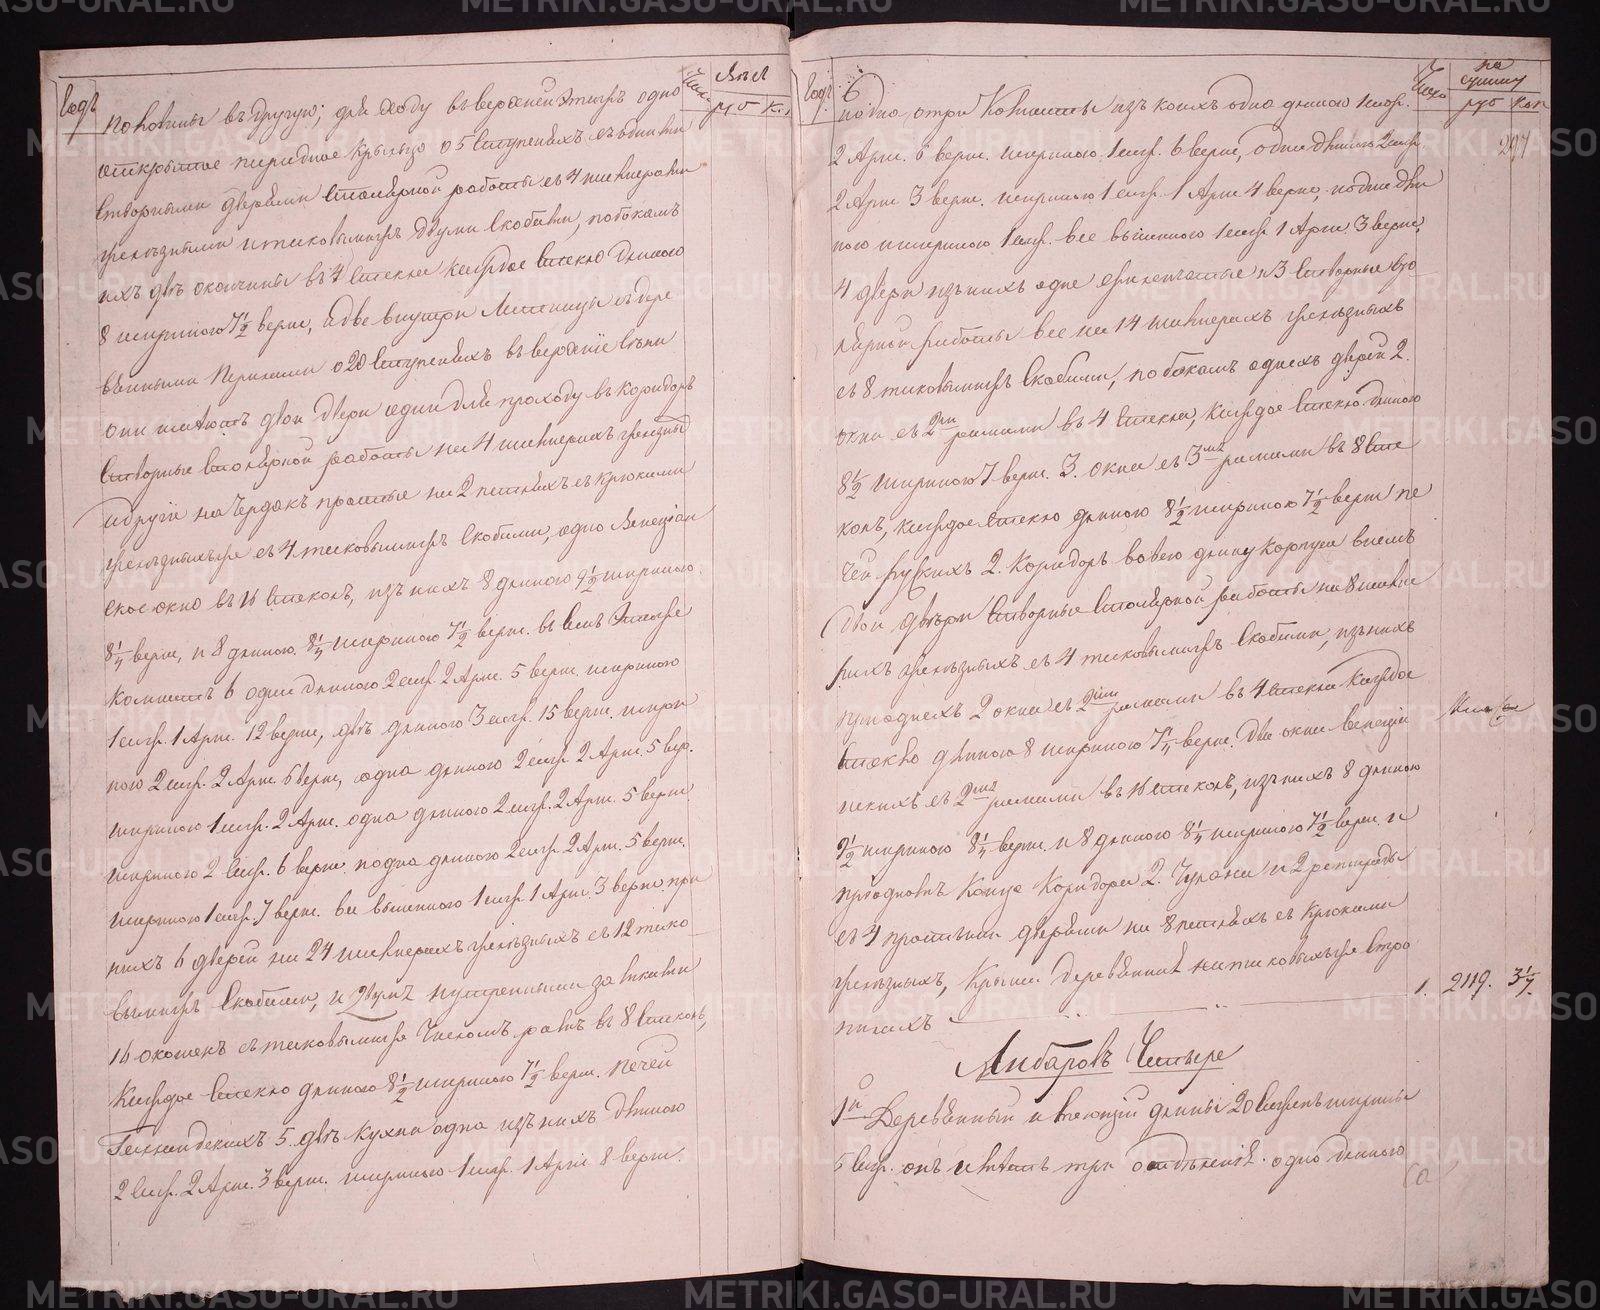 Годъ
Число
руб к.
половины въ другую; для ходу въ верхней этажъ одно
открытое переднее крыльцо о 5 ступеняхъ съ одними
створными дверями столярной работы съ 4 шивперами
желѣзными и таковымижъ двумя скобами, по бокамъ
ихъ двѣ окончины въ 4 стекла каждое стекло длиною
8 шириною 7½ верш, и две внутри лестницы съ дере
вянными перилами о 20 ступеняхъ въ верхние сѣни
они имѣютъ двои двери одни для проходу въ коридоръ
створные столярной работы на 4 шивперахъ желѣзныхъ
и другие на чердакъ простые на 2 петляхъ съ крюками
желѣзныхъже съ 4 таковымижъ скобами, одно Венециан
ское окно въ 16 стеколъ, изъ нихъ 8 длиною 9½ шириною
8¼ верш, и 8 длиною 8¼ шириною 7½ верш. въ семъ этаже
комнатъ 6 одна длиною 2 саж. 2 Арш. 5 верш. шириною
1 саж. 1 Арш. 12 верш, двѣ длиною 3 саж. 15 верш. шири
ною 2 саж. 2 Арш. 6 верш, одна длиною 2 саж. 2 Арш. 5 вер.
шириною 1 саж. 2 Арш. одна длиною 2 саж. 2 Арш. 5 верш.
шириною 2 саж. 6 верш. и одна длиною 2 саж. 2 Арш. 5 верш.
шириною 1 саж. 7 верш. все вышиною 1 саж. 1 Арш. 3 верш. при
нихъ 6 дверей на 24 шивперахъ желѣзныхъ съ 12 тако
вымижъ скобами, и двумя нутренными замками
16 окошекъ съ таковымже числомъ рамъ въ 8 стеколъ,
каждое стекло длиною 8½ шириною 7½ верш. печей
Галландскихъ 5. двѣ кухни одна изъ нихъ длиною
2 саж. 2 Арш. 3 верш. шириною 1 саж. 1 Арш. 8 верш.
Годъ
6
Число
на сумму
руб коп
297
и одна, и три комнаты изъ коихъ одна длиною 1 саж.
2 Арш. 6 верш. шириною 1 саж. 6 верш, одна длиною 2 саж.
2 Арш 3 верш. шириною 1 саж. 1 Арш 4 верш, и одна дли
ною и шириною 1 саж. все вышиною 1 саж 1 Арш. 3 верш,
4 двери изъ нихъ одне филенчатые и 3 створные сто
лярной работы все на 14 шивперахъ желѣзныхъ
съ 8 таковымижъ скобами, по бокамъ однехъ дверей 2.
окна съ 2мя рамами въ 4 стекла, каждое стекло длиною
8½ шириною 7 верш. 3. окна съ 3мя рамами въ 8 сте
колъ, каждое стекло длиною 8½ шириною 7½ верш пе
чей рускихъ 2. Коридоръ во всю длину корпуса в немъ
двои двѣри створные столярной работы на 8 шивпе
рахъ желѣзныхъ съ 4 таковымижъ скобами, изъ нихъ
при однехъ 2 окна съ 2мя рамами въ 4 стекла каждое
стекло длиною 8 шириною 7¼ верш. Две окна венеци
нскихъ съ 2мя рамами въ 16 стеколъ, изъ нихъ 8 длиною
9½ шириною 8¼ верш. и 8 длиною 8¼ шириною 7½ верш. и
при одномъ конце коридора 2. чулана и 2 ретирады
съ 4 простыми дверями на 8 петляхъ съ крюками
желѣзныхъ, крыша деревянная на таковыхъже стро
пилахъ
1. 2119. 3½
Амбаровъ Четыре
1й Деревянный и имеющий длины 20 сажень ширины
5 саж. онъ имѣетъ три отдѣления. одно длиною